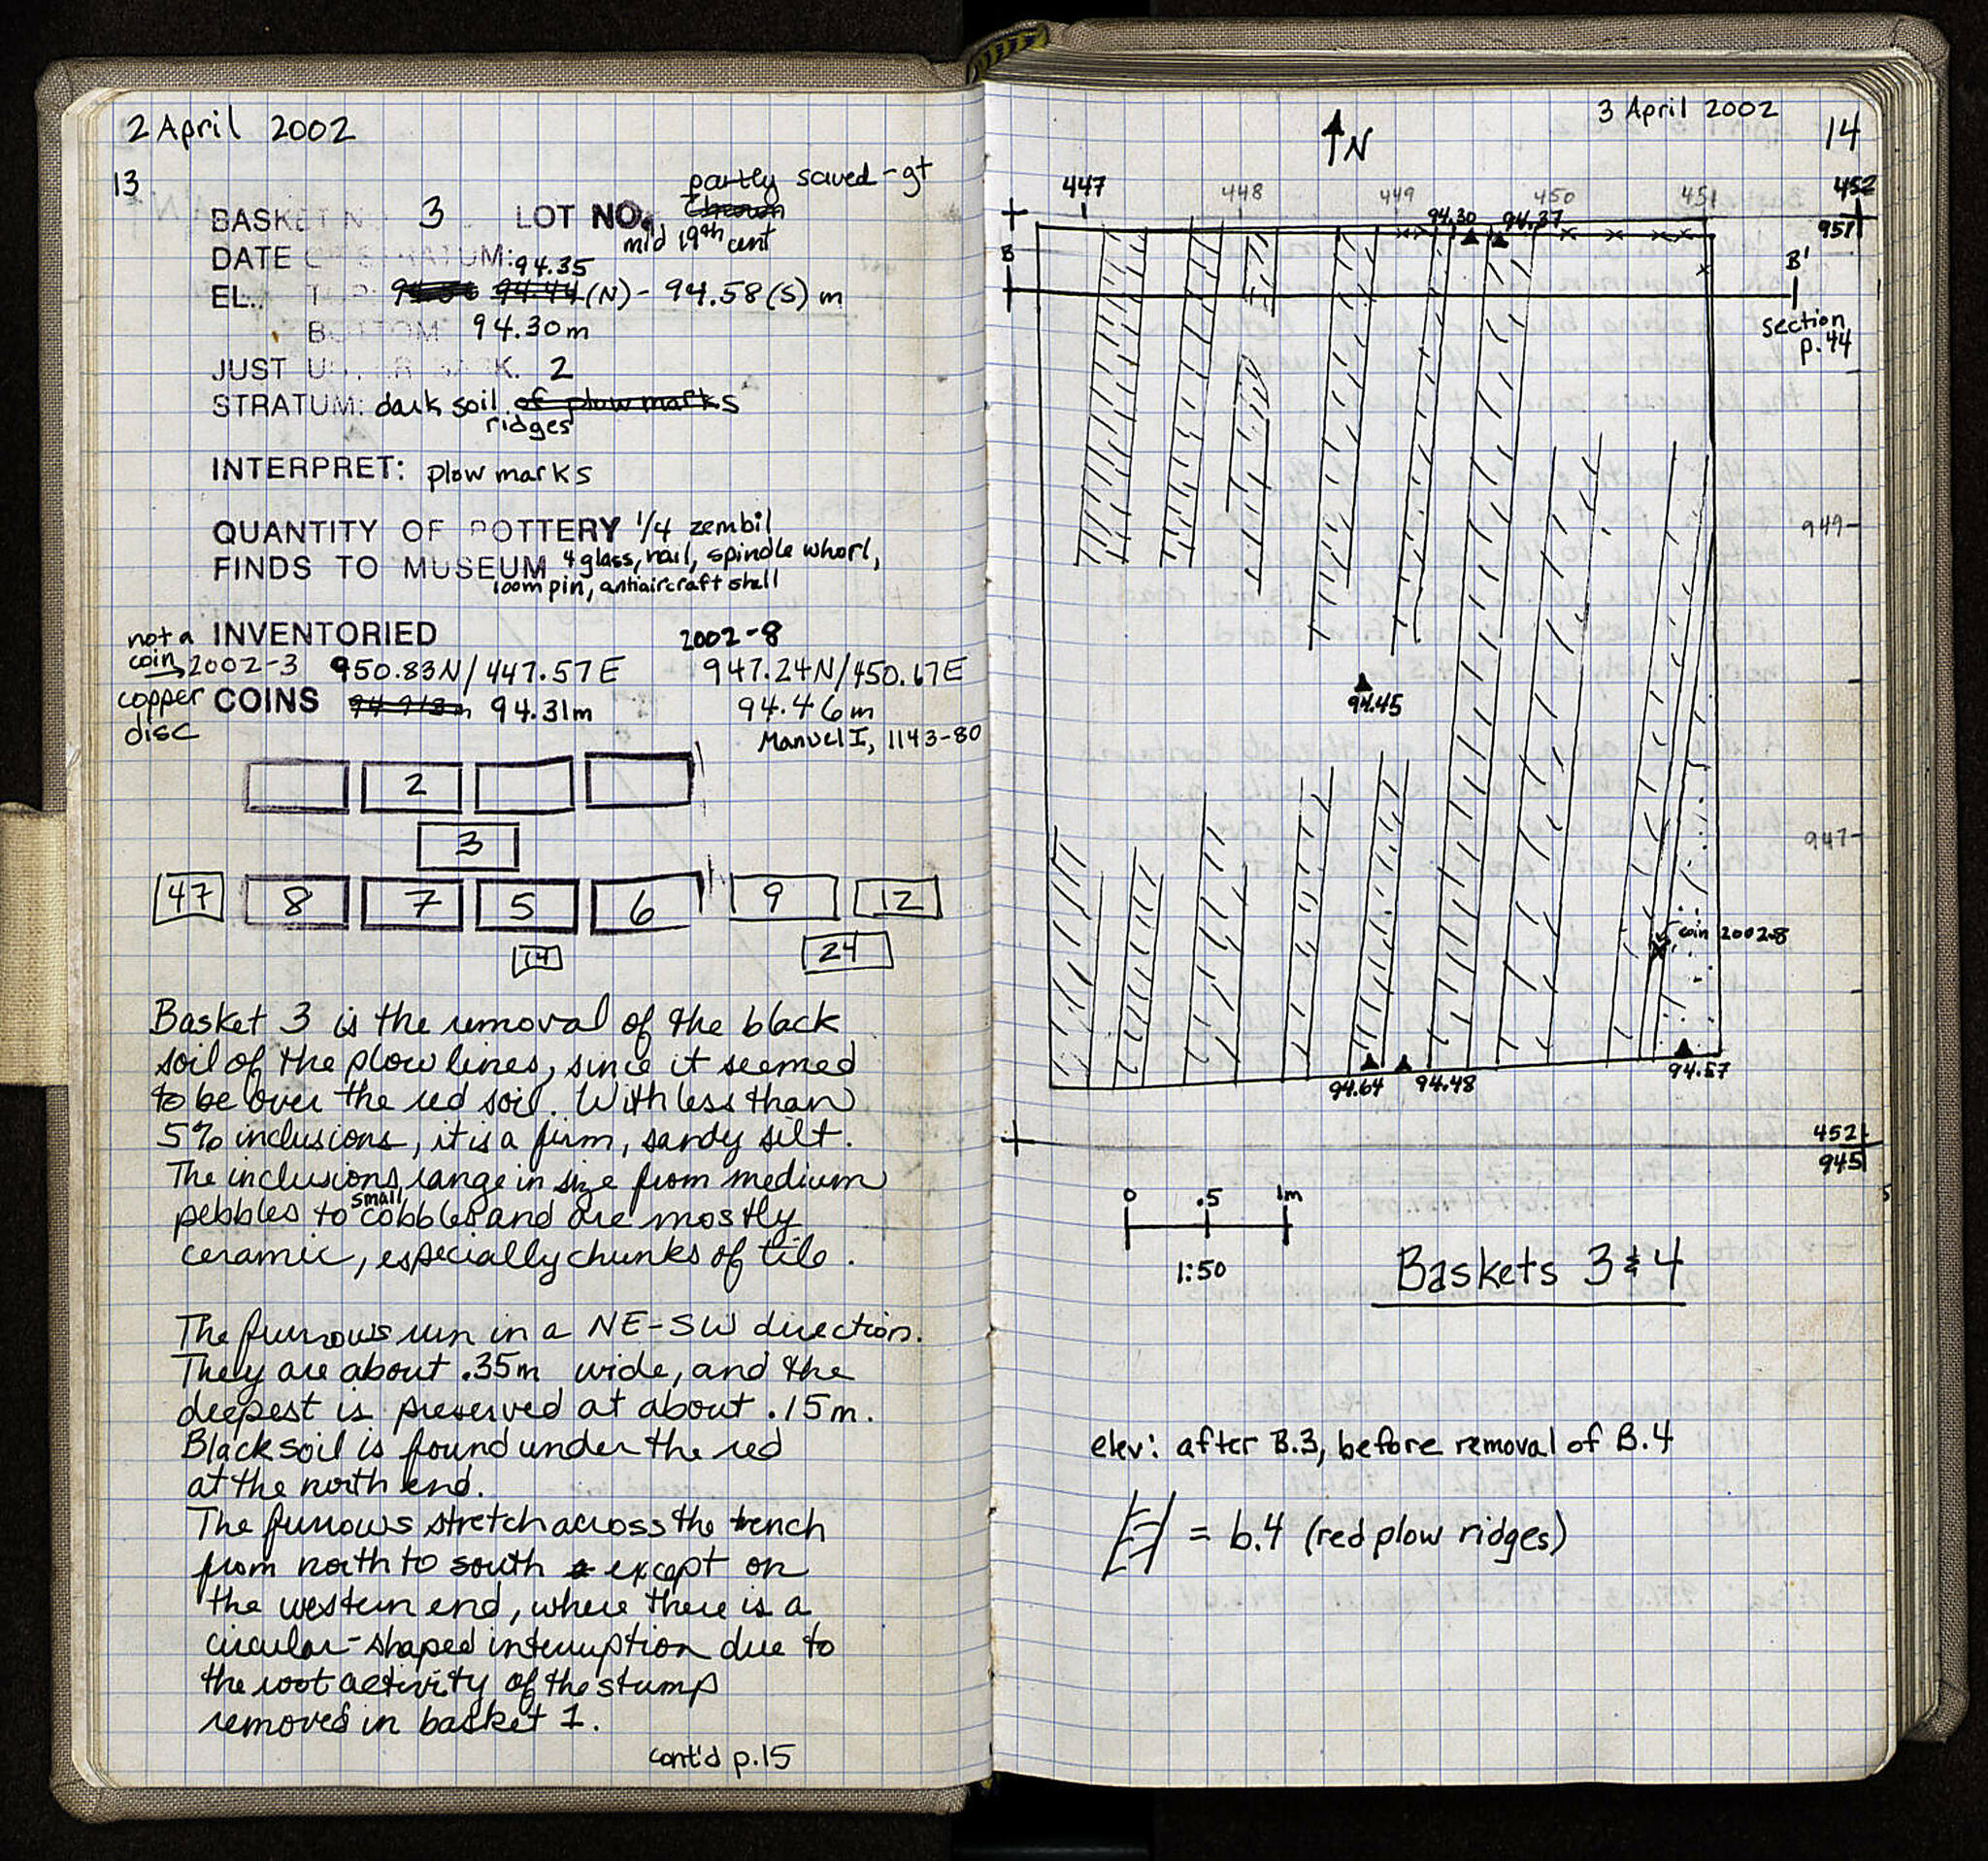 2 April 2002
13
partly saved - gt
BASKET NO. 3 LOT NO. thrown
mid 19th cent
DATE OF STRATUM:
94.35
EL. TOP: 94.44 (N) - 94.58 (S) m
BOTTOM 94.30m
JUST UNDER BASK. 2
STRATUM: dark soil of plow marks
ridges
INTERPRET: plow marks
QUANTITY OF POTTERY 1/4 zembil
FINDS TO MUSEUM 4 glass, nail, spindle whorl,
loom pin, antiaircraft shell
not a INVENTORIED 2002-8
coin 2002-3 950.83N/447.57E 947.24N/450.67E
copper COINS 94.31m 94.46m
disc Manuel I, 1143-80
2
3
47 8 7 5 6 9 12
14 24
Basket 3 is the removal of the black
soil of the plow lines, since it seemed
to be over the red soil. With less than
5% inclusions, it is a firm, sandy silt.
The inclusions range in size from medium
pebbles to small cobbles and are mostly
ceramic, especially chunks of tile.
The furrows run in a NE-SW direction.
They are about .35m wide, and the
deepest is preserved at about .15m.
Black soil is found under the red
at the north end.
The furrows stretch across the trench
from north to south except on
the western end, where there is a
circular-shaped interruption due to
the root activity of the stump
removed in basket 1.
cont'd p.15
3 April 2002
14
N
447 448 449 450 451 452
94.30 94.37 951
B B'
section
p.44
949
94.45
947
coin 2002-8
94.64 94.48 94.57
452
945
0 .5 1m
1:50
Baskets 3 & 4
elev: after B.3, before removal of B.4
= b.4 (red plow ridges)